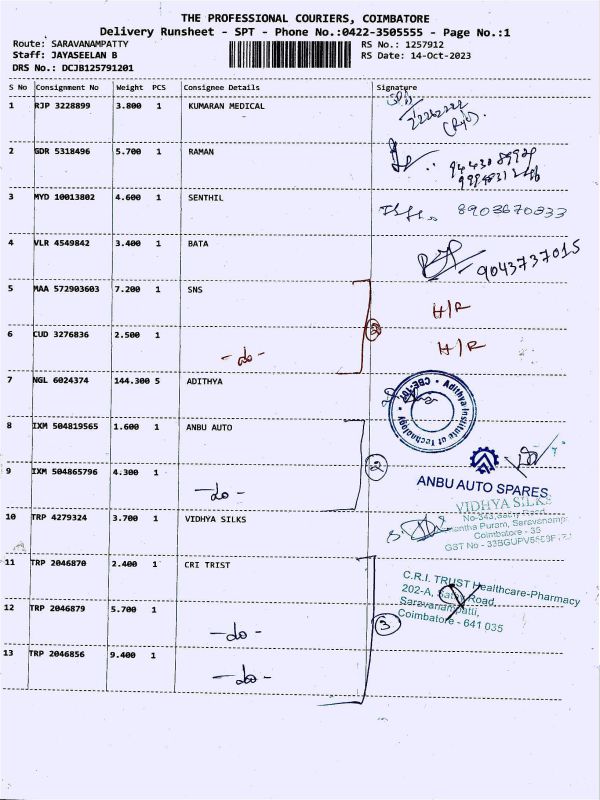 THE PROFESSIONAL COURIERS, COIMBATORE
Delivery Runsheet - SPT - Phone No.:0422-3505555 - Page No.:1
Route: SARAVANAMPATTY RS No.: 1257912
Staff: JAYASEELAN B RS Date: 14-Oct-2023
DRS No.: DCJB125791201
S No Consignment No Weight PCS Consignee Details Signature
1 RJP 3228899 3.800 1 KUMARAN MEDICAL
2 GDR 5318496 5.700 1 RAMAN
3 MYD 10013802 4.600 1 SENTHIL 8903670833
4 VLR 4549842 3.400 1 BATA
9043737015
5 MAA 572903603 7.200 1 SNS H/R
2
6 CUD 3276836 2.500 1 H/R
-do-
7 NGL 6024374 144.300 5 ADITHYA
Adithya Institute of Technology • CBE-107 •
8 IXM 504819565 1.600 1 ANBU AUTO
2
9 IXM 504865796 4.300 1 ANBU AUTO SPARES
-do-
10 TRP 4279324 3.700 1 VIDHYA SILKS
VIDHYA SILKS
Coimbatore - 35
GST No -
11 TRP 2046870 2.400 1 CRI TRIST
C.R.I. TRUST Healthcare-Pharmacy
202-A, Road,
Saravanampatti,
Coimbatore - 641 035
12 TRP 2046879 5.700 1
-do-
3
13 TRP 2046856 9.400 1
-do-